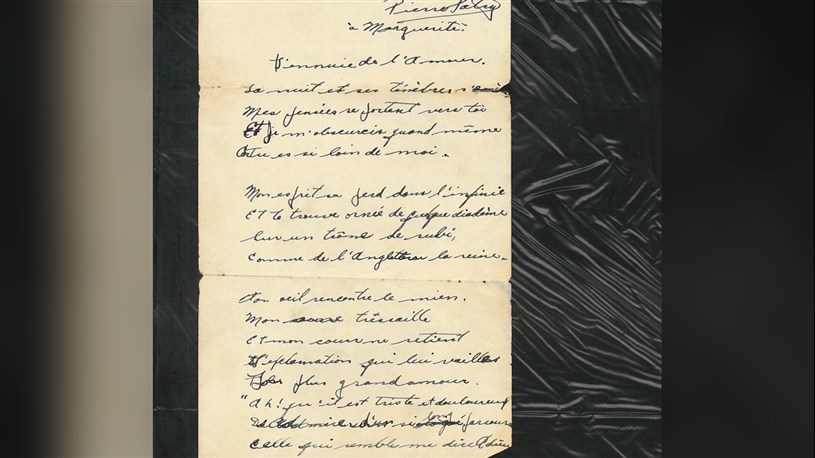 Pierre
à Marguerite.
L'ennuie de l'Amour.
La nuit et ses ténèbres
Mes pensées se portent vers toi
Et je m'obscurcis quand même
tu es si loin de moi.
Mon esprit se perd dans l'infinie
Et te trouve ornée de diadème
Sur un trône de rubi,
Comme de l'Angleterre la reine.
Ton oeil rencontre le mien.
Mon tressaille
Et mon coeur ne retient
L'exclamation qui lui vaille
plus grand amour.
"Ah! qu'il est triste et douloureux
si loin
Celle qui semble me dire Adieu